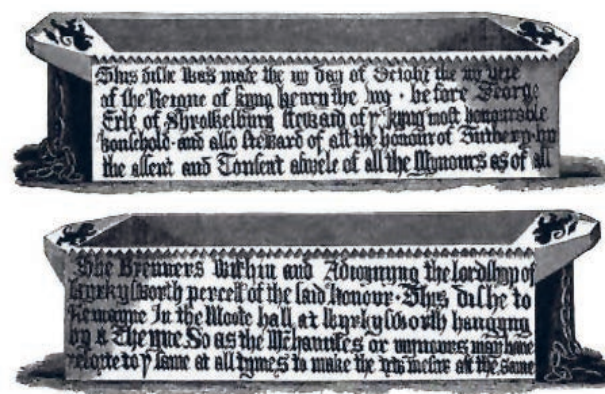 This dishe was made the iiij day of Octobr the iiij yere
of the Reigne of kyng Henry the viij · before George
Erle of Shrowesbury Steward of yᵉ kyng most honourable
houshold · and also Steward of all the honour of Tutbery by
the assent and Consent aswele of all the Mynours as of all
the Brenners within and Adioynyng the lordshyp of
Wyrkysworth percell of the said honour · This dishe to
Remayne In the Moote hall at Wyrkysworth hangyng
by a Cheyne So as the Mchauntes or mynours may have
resorte to yᵉ same at all tymes to make the trw mesur att the same